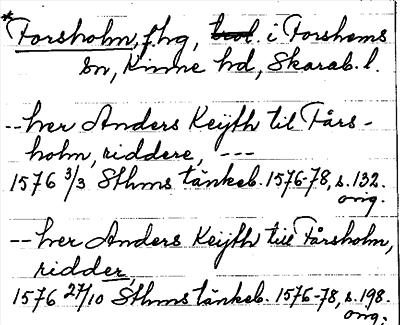 *Forsholm, f.hg, i Forshems
sn, Kinne hd, Skarab. l.
-- her Anders Keijth til Fårs-
holm, riddere, ---
1576 3/3 Sthms tänkeb. 1576-78, s. 132.
orig.
-- her Anders Keijth till Fårsholm,
ridder,
1576 27/10 Sthms tänkeb. 1576-78, s. 198.
orig.